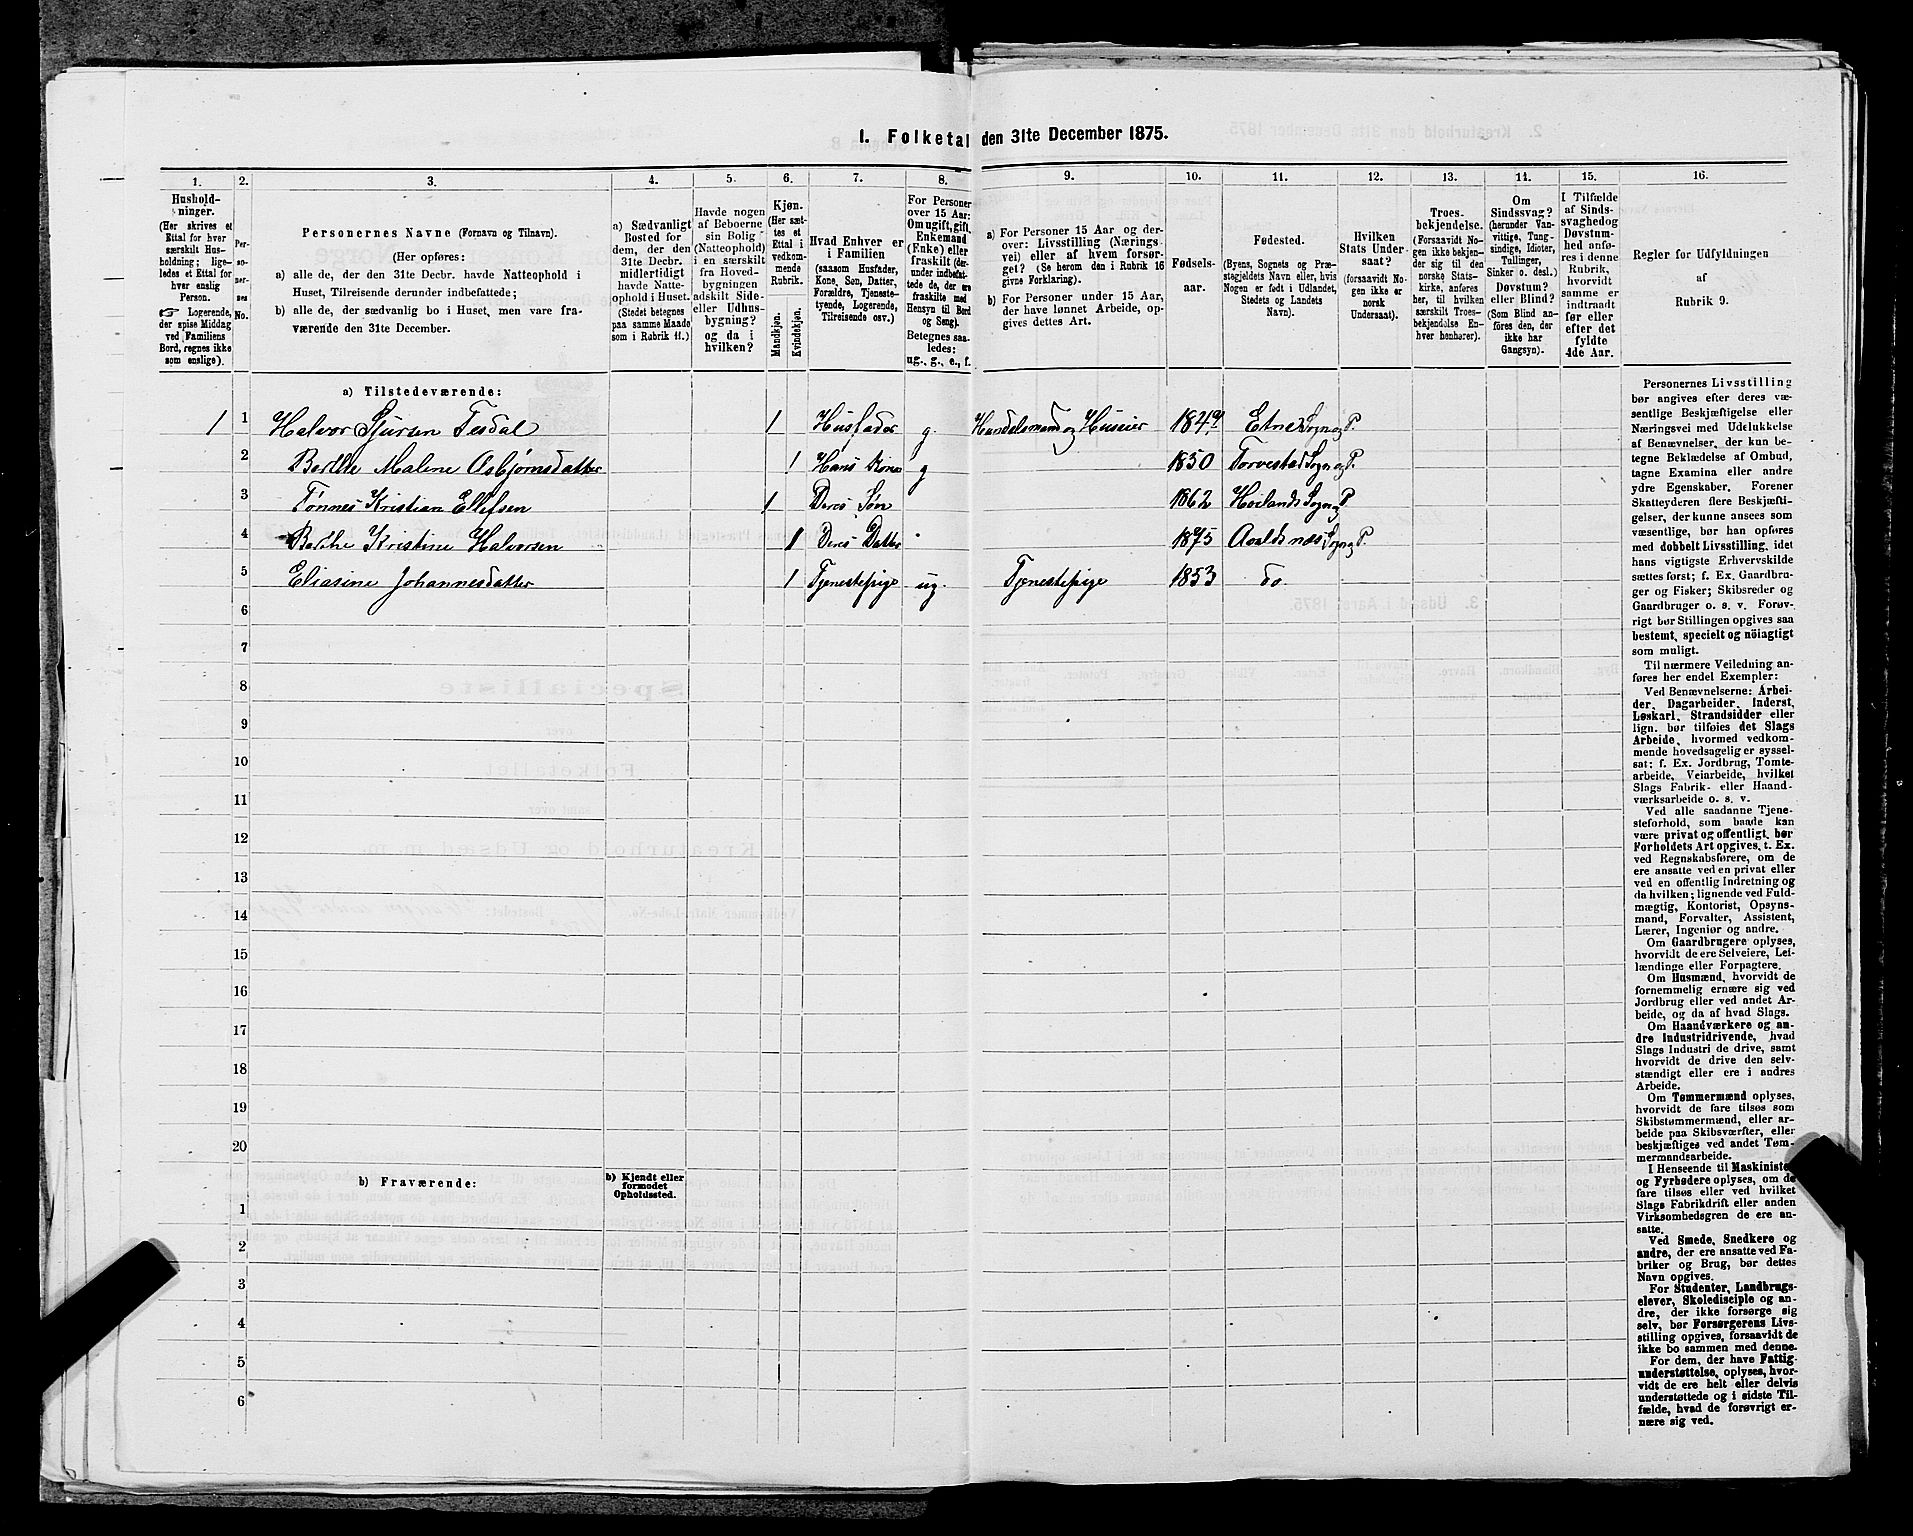 I. Folketal den 31te December 1875.
1. 2. 3. 4. 5. 6. 7. 8. 9. 10. 11. 12. 13. 14. 15. 16.
Hushold-
ninger.
(Her skrives et
Ettal for hver
særskilt Hus-
holdning; lige-
ledes et Ettal for
hver enslig
Person.
☞ Logerende,
der spise Middag
ved Familiens
Bord, regnes ikke
som enslige).
Per-
so-
ner-
nes
No.
Personernes Navne (Fornavn og Tilnavn).
(Her opføres:
a) alle de, der den 31te Decbr. havde Natteophold i
Huset, Tilreisende derunder indbefattede;
b) alle de, der sædvanlig bo i Huset, men vare fra-
værende den 31te December.
a) Sædvanligt
Bosted for
dem, der den
31te Decbr.
midlertidigt
havde Natte-
ophold i Huset.
(Stedet betegnes
paa samme Maade
som i Rubrik 11.)
Havde nogen
af Beboerne
sin Bolig
(Natteophold)
i en særskilt
fra Hoved-
bygningen
adskilt Side-
eller Udhus-
bygning?
og da i
hvilken?
Kjøn.
(Her sæt-
tes et
Ettal i
vedkom-
mende
Rubrik.
Mandkjøn.
Kvindekjøn.
Hvad Enhver er
i Familien
(saasom Husfader,
Kone, Søn, Datter,
Forældre, Tjeneste-
tyende, Logerende,
Tilreisende osv.)
For Personer
over 15 Aar:
Om ugift, gift,
Enkemand
(Enke) eller
fraskilt (der-
under indbefat-
tede de, der ere
fraskilte med
Hensyn til Bord
og Seng).
Betegnes saa-
ledes:
ug., g., e., f.
a) For Personer 15 Aar og der-
over: Livsstilling (Nærings-
vei) eller af hvem forsør-
get? (Se herom den i Rubrik 16
givne Forklaring).
b) For Personer under 15 Aar,
der have lønnet Arbeide, op-
gives dettes Art.
Fødsels-
aar.
Fødested.
(Byens, Sognets og Præ-
stegjeldets Navn eller, hvis
Nogen er født i Udlandet,
Stedets og Landets
Navn).
Hvilken
Stats Under-
saat?
(forsaavidt No-
gen ikke er
norsk
Undersaat).
Troes-
bekjendelse.
(Forsaavidt No-
gen ikke bekjen-
der sig til den
norske Stats-
kirke, anføres
her, til hvilken
særskilt Troes-
bekjendelse En-
hver henhører).
Om
Sindssvag?
(herunder Van-
vittige, Tung-
sindige, Idioter,
Tullinger,
Sinker o. desl.)
Døvstum?
eller Blind?
(Som Blind an-
føres den, der
ikke har
Gangsyn).
I Tilfælde
af Sinds-
svaghed og
Døvstum-
hed anfø-
res i denne
Rubrik,
hvorvidt
samme er
indtraadt
før eller
efter det
fyldte
4de Aar.
Regler for Udfyldningen
af
Rubrik 9.
a) Tilstedeværende:
1 1 Halvor Sjursen Tesdal 1 Husfader g. Handelsmand og Huseier 1849 Etne Sogn og P.
2 Berthe Malene Asbjørnsdatter 1 Hans Kone g 1850 Torvestad Sogn og P.
3 Tønnes Kristian Ellefsen 1 Deres Søn 1862 Høilands Sogn og P
4 Berthe Kristine Halvorsen 1 Deres Datter 1875 Avaldsnæs Sogn og P.
5 Eliasine Johannesdatter 1 Tjenestepige ug. Tjenestepige 1853 do
6
7
8
9
10
11
12
13
14
15
16
17
18
19
20
b) Fraværende:
b) Kjendt eller
formodet
Opholdssted.
1
2
3
4
5
6
Personernes Livsstilling
bør angives efter deres væ-
sentlige Beskjæftigelse eller
Næringsvei med Udelukkelse
af Benævnelser, der kun be-
tegne Beklædelse af Ombud,
tagne Examina eller andre
ydre Egenskaber. Forener
Skatteyderen flere Beskjæfti-
gelser, der kunne ansees som
væsentlige, bør han opføres
med dobbelt Livsstilling, idet
hans vigtigste Erhvervskilde
sættes først; f. Ex. Gaardbru-
ger og Fisker; Skibsreder og
Gaardbruger o. s. v. Forøv-
rigt bør Stillingen opgives saa
bestemt, specielt og nöiagtigt
som muligt.
Til nærmere Veiledning an-
føres her endel Exempler:
Ved Benævnelserne: Arbei-
der, Dagarbeider, Inderst,
Løskarl, Strandsidder eller
lign. bør tilføies det Slags
Arbeide, hvormed vedkom-
mende hovedsagelig er syssel-
sat; f. Ex. Jordbrug, Tomte-
arbeide, Veiarbeide, hvilket
Slags Fabrik- eller Haand-
værksarbeide o. s. v.
Ved alle saadanne Tjene-
steforhold, som baade kan
være privat og offentligt, bør
Forholdets Art opgives, t. Ex.
ved Regnskabsførere, om de
ere ansatte ved en privat eller
ved en offentlig Indretning og
da hvilken; lignende ved Fuld-
mægtig, Kontorist, Opsyns-
mand, Forvalter, Assistent,
Lærer, Ingeniør og andre.
Om Gaardbrugere oplyses,
hvorvidt de ere Selveiere, Lei-
lændinge eller Forpagtere.
Om Husmænd, hvorvidt de
fornemmelig ernære sig ved
Jordbrug eller ved andet Ar-
beide, og da af hvad Slags.
Om Haandværkere og an-
dre Industridrivende, hvad
Slags Industri de drive, samt
hvorvidt de drive den selv-
stændigt eller ere i andres
Arbeide.
Om Tømmermænd oplyses,
hvorvidt de fare tilsøs som
Skibstømmermænd, eller ar-
beide paa Skibsværfter, eller
beskjæftiges ved andet Tøm-
mermandsarbeide.
I Henseende til Maskinister
og Fyrbødere oplyses, om de
fare tilsøs eller ved hvilket
Slags Fabrikdrift eller anden
Virksomhedsgren de ere an-
satte.
Ved Smede, Snedkere og
andre, der ere ansatte ved Fa-
briker og Brug, bør dettes
Navn opgives.
For Studenter, Landbrugs-
elever, Skoledisciple og an-
dre, der ikke forsørge sig
selv, bør Forsørgerens Livs-
stilling opgives, forsaavidt de
ikke bo sammen med denne.
For dem, der have Fattig-
understøttelse, oplyses, hvor-
vidt de ere helt eller delvis
understøttede og i sidste Til-
fælde, hvad de forøvrigt er-
nære sig ved.